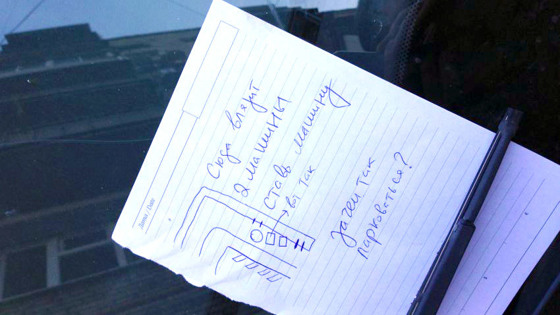 Сюда влезит
2 машины
Ставь машину
вот так
Зачем так
парковаться?